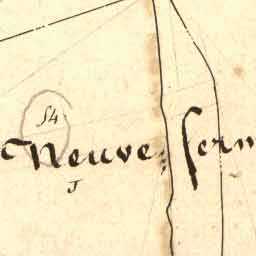 54
Neuve ferm
J